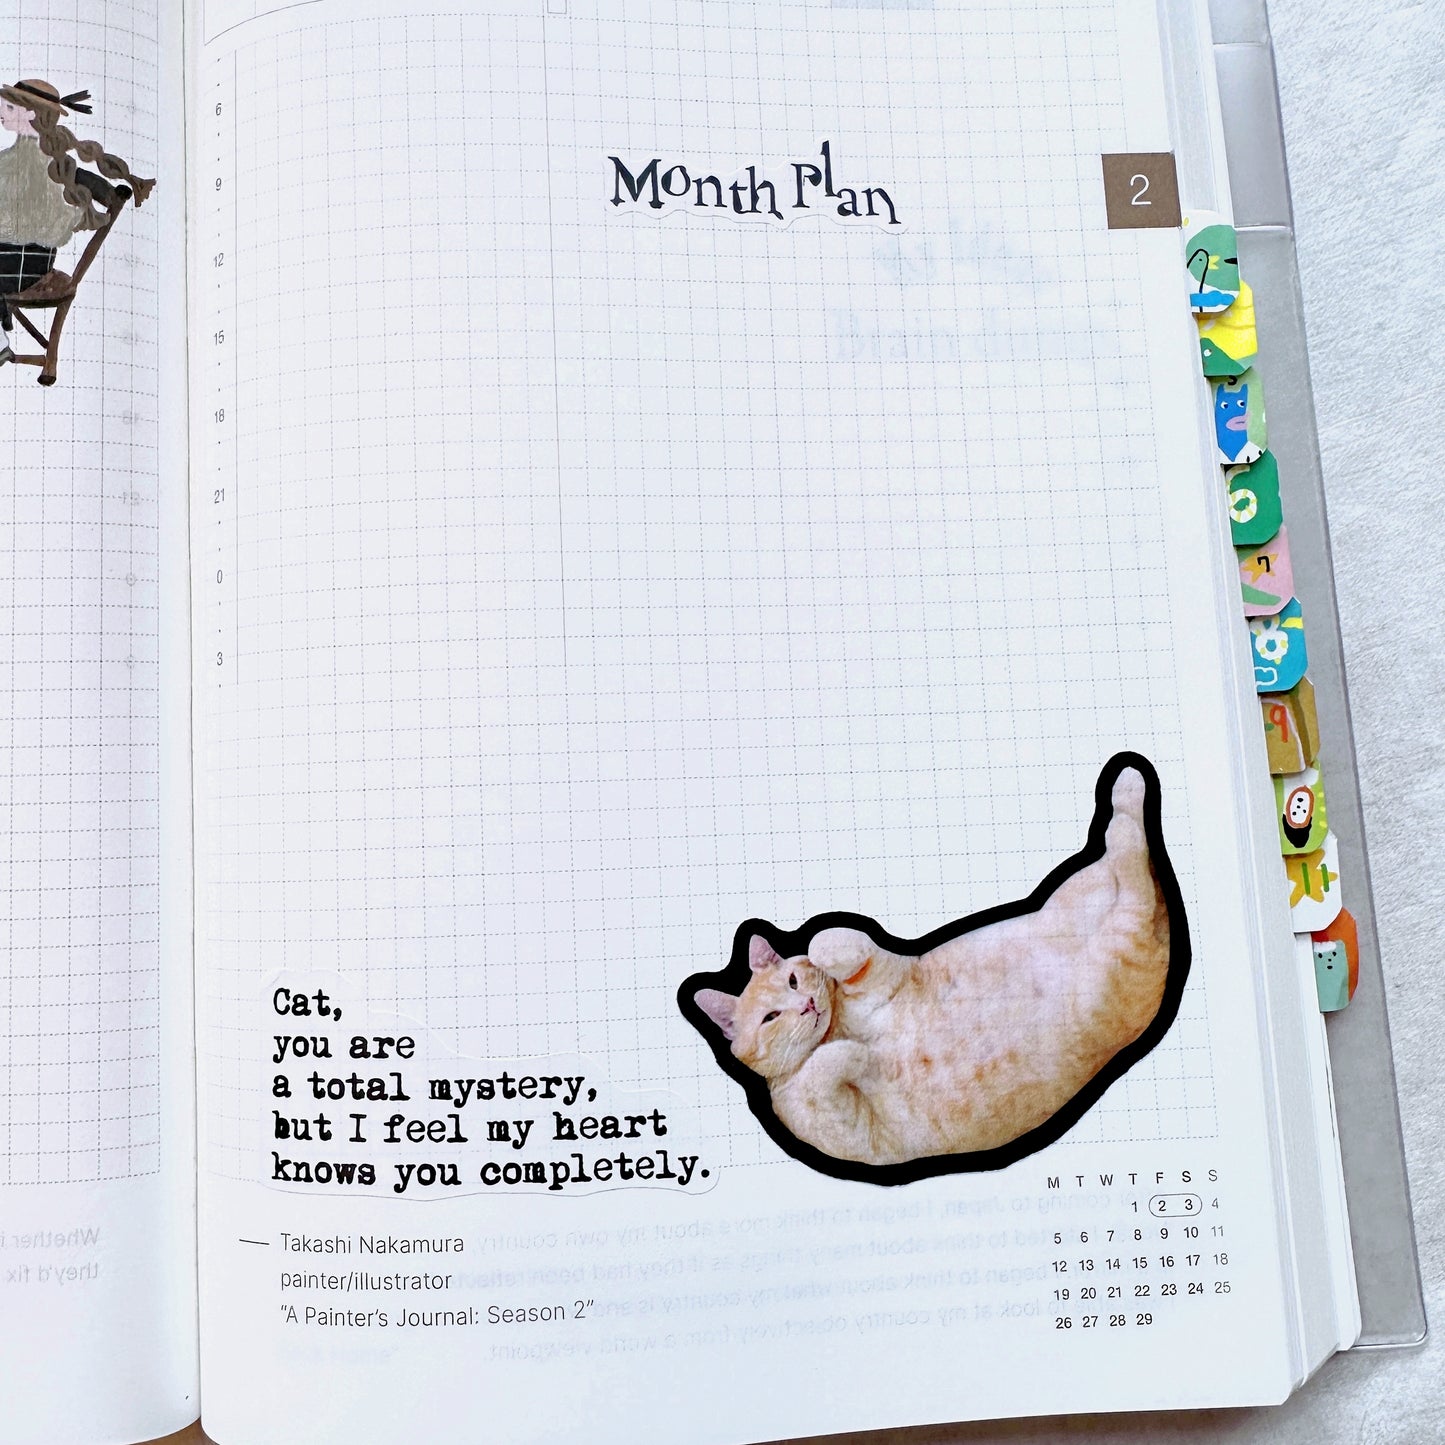 Month Plan
2
6
9
12
15
18
21
0
3
6
7
8
9
11
Cat,
you are
a total mystery,
but I feel my heart
knows you completely.
— Takashi Nakamura
painter/illustrator
“A Painter’s Journal: Season 2”
M T W T F S S
1 2 3 4
5 6 7 8 9 10 11
12 13 14 15 16 17 18
19 20 21 22 23 24 25
26 27 28 29